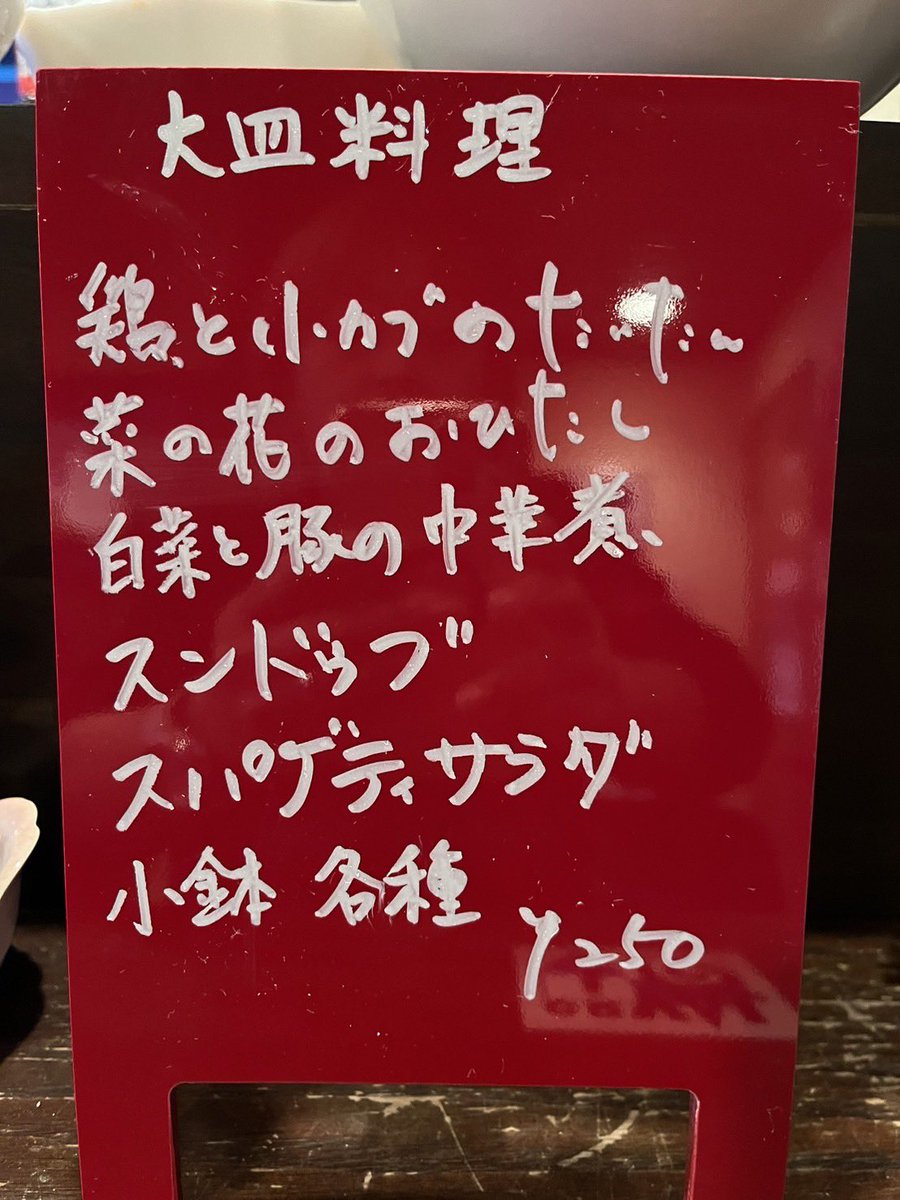 大皿料理
鶏と小カブのたいたん
菜の花のおひたし
白菜と豚の中華煮
スンドゥブ
スパゲティサラダ
小鉢 各種
¥250